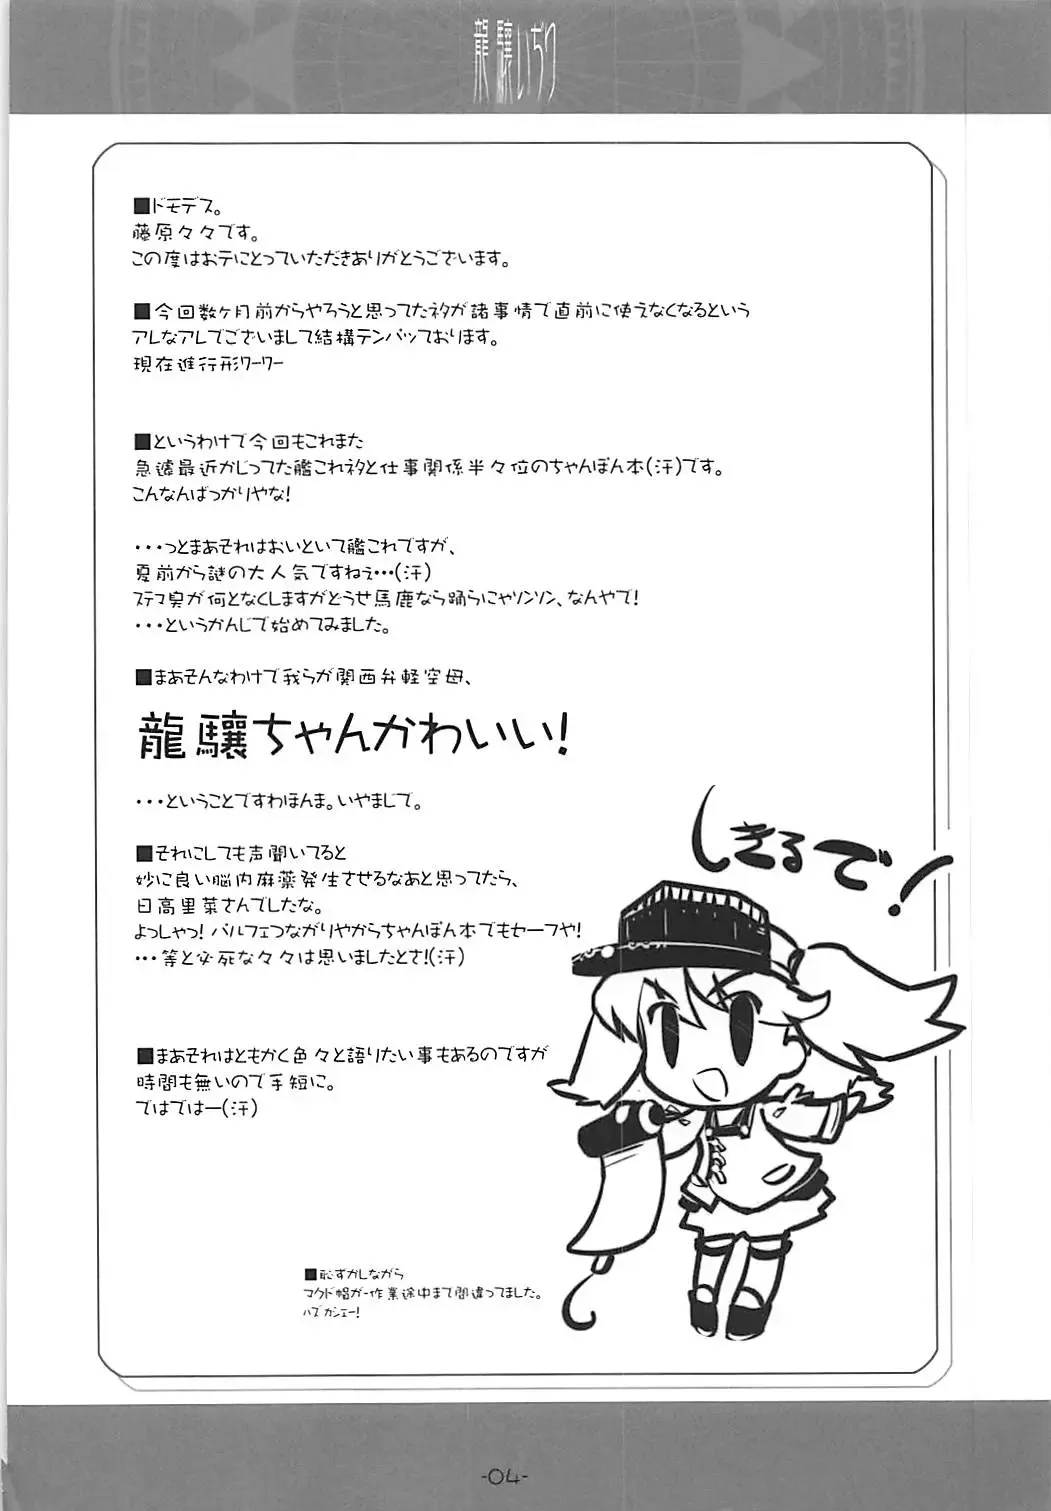 龍驤いぢり
■ドモデス。
藤原々々です。
この度はお手にとっていただきありがとうございます。
■今回数ヶ月前からやろうと思ってたネタが諸事情で直前に使えなくなるという
アレなアレでございまして結構テンパッております。
現在進行形ワーワー
■というわけで今回もこれまた
急遽最近かじってた艦これネタと仕事関係半々位のちゃんぽん本(汗)です。
こんなんばっかりやな!
・・・っとまあそれはおいといて艦これですが、
夏前から謎の大人気ですねぇ・・・(汗)
ステマ臭が何となくしますがどうせ馬鹿なら踊らにゃソンソン、なんやで!
・・・というかんじで始めてみました。
■まあそんなわけで我らが関西弁軽空母、
龍驤ちゃんかわいい!
・・・ということですわほんま。いやまじで。
■それにしても声聞いてると
妙に良い脳内麻薬発生させるなあと思ってたら、
日高里菜さんでしたな。
よっしゃっ!パルフェつながりやからちゃんぽん本でもセーフや!
・・・等と必死な々々は思いましたとさ!(汗)
■まあそれはともかく色々と語りたい事もあるのですが
時間も無いので手短に。
ではではー(汗)
しきるで!
■恥ずかしながら
マクド帽がー作業途中まで間違ってました。
ハズカシェー!
-04-